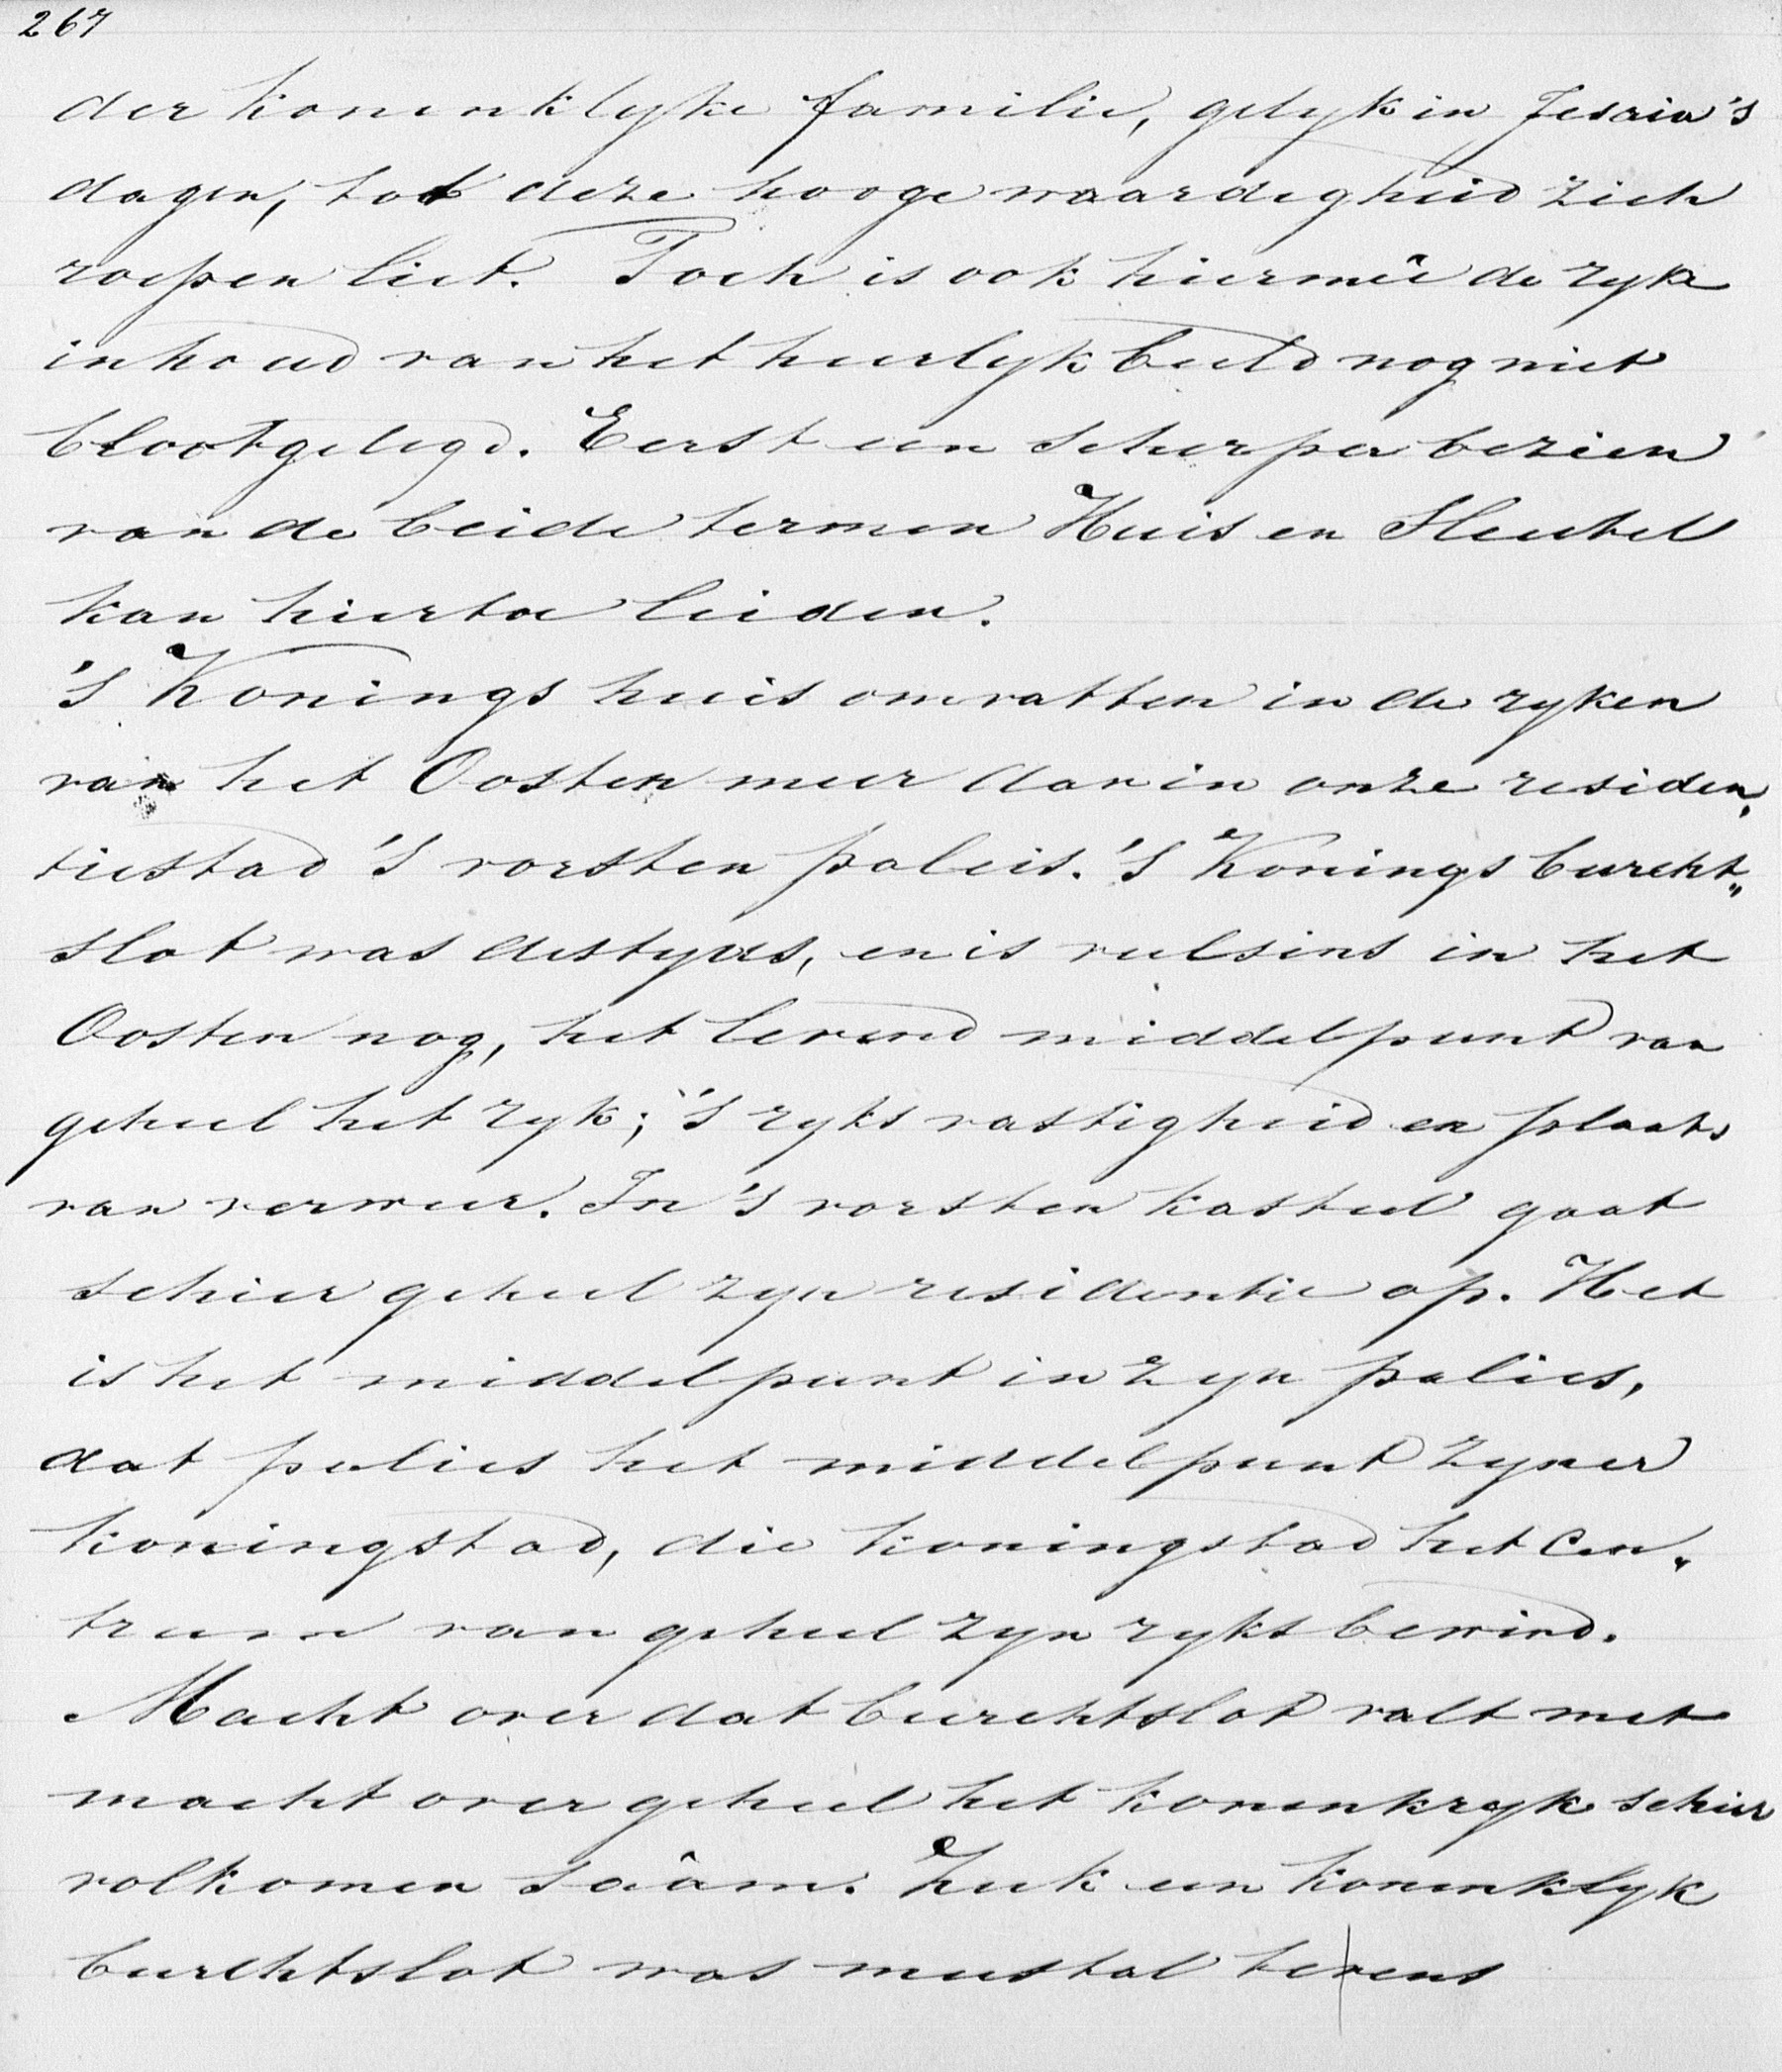 267
der koninklyke familie, gelyk in Jesaia's
dagen, tot deze hooge waardigheid zich
roepen liet. Toch is ook hiermeê de ryke
inhoud van het heerlyk beeld nog niet
blootgelegd. Eerst een scherper bezien
van de beide termen Huis en Sleutel
kan hiertoe leiden.
's Konings huis omvatten in de ryken
van het Oosten meer dan in onze residen„
tiestad 's vorsten paleis. 's Konings burcht„
slot was destyds, en is veelsins in het
Oosten nog, het levend middelpunt van
geheel het ryk; 's ryks vastigheid en plaats
van verweer. In 's vorsten kasteel gaat
schier geheel zyn residentie op. Het
is het middelpunt in zyn palies,
dat palies het middelpunt zyner
koningstad, die koningstad het Cen„
trum van geheel zyn ryks bewind.
Macht over dat burchtslot valt met
macht over geheel het koninkryk schier
volkomen saâm. Zulk een koninklyk
burchtslot was meestal tevens